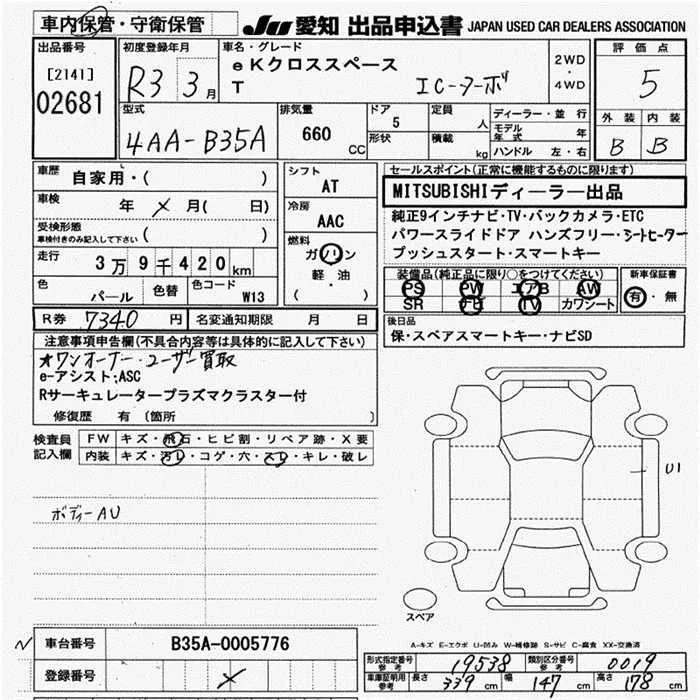 車内保管・守衛保管
JU 愛知 出品申込書 JAPAN USED CAR DEALERS ASSOCIATION
出品番号
[2141]
02681
初度登録年月
R3 3月
車名・グレード
eKクロススペース
T ICターボ
2WD
・
4WD
評価点
5
外装 内装
B B
型式
4AA-B35A
排気量
660
CC
ドア
5
形状
定員
人
積載
kg
ディーラー・並行
モデル年式 年
ハンドル 左・右
車歴
自家用・( )
車検
年 × 月( 日)
受検形態
車検付きのみ記入して下さい ( )
走行
3万9千420km
色
パール
色替
色コード
W13
シフト
AT
冷房
AAC
燃料
ガソリン
軽・油
( )
セールスポイント(正常に機能するものに限ります)
MITSUBISHIディーラー出品
純正9インチナビ・TV・バックカメラ・ETC
パワースライドドア ハンズフリー・シートヒーター
プッシュスタート・スマートキー
装備品(純正品に限り○をつけてください)
PS PW エアB AW
SR ナビ TV カワシート
新車保証書
有・無
R券 7340 円 名変通知期限 月 日
後日品
保・スペアスマートキー・ナビSD
注意事項申告欄(不具合内容等は具体的に記入して下さい)
オワンオーナー・ユーザー買取
e-アシスト;ASC
Rサーキュレータープラズマクラスター付
修復歴 有 〔箇所 〕
検査員
記入欄
FW キズ・飛石・ヒビ割・リペア跡・X要
内装 キズ・汚レ・コゲ・穴・スレ・キレ・破レ
ボディーAU
U1
スペア
A-キズ E-エクボ U-凹み W-補修跡 S-サビ C-腐食 XX-交換済
N 車台番号 B35A-0005776
登録番号 ×
形式指定番号 参考 19538 類別区分番号 参考 0019
車庫証明用 参考 長さ 339 cm 幅 147 cm 高さ 178 cm